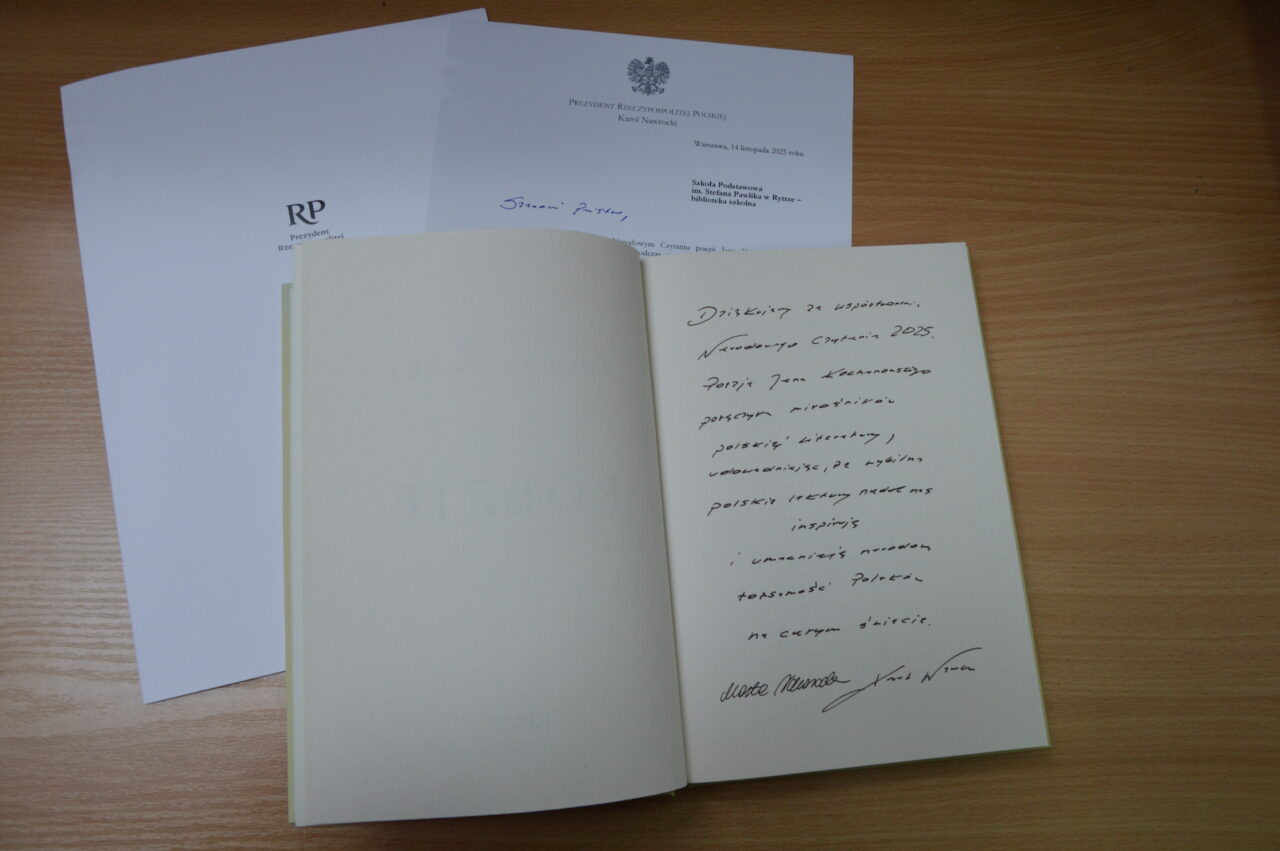 PREZYDENT RZECZYPOSPOLITEJ POLSKIEJ
Karol Nawrocki
Warszawa, 14 listopada 2025 roku
Szkoła Podstawowa
im. Stefana Pawlika w Rytrze –
biblioteka szkolna
Szanowni Państwo,
Narodowym Czytaniu poezji Jana
RP
Prezydent
Dziękujemy za współtworzenie
Narodowego Czytania 2025.
Poezja Jana Kochanowskiego
połączyła miłośników
polskiej literatury,
udowadniając, że wybitne
polskie lektury nadal nas
inspirują
i umacniają narodową
tożsamość Polaków
na całym świecie.
POEZJE